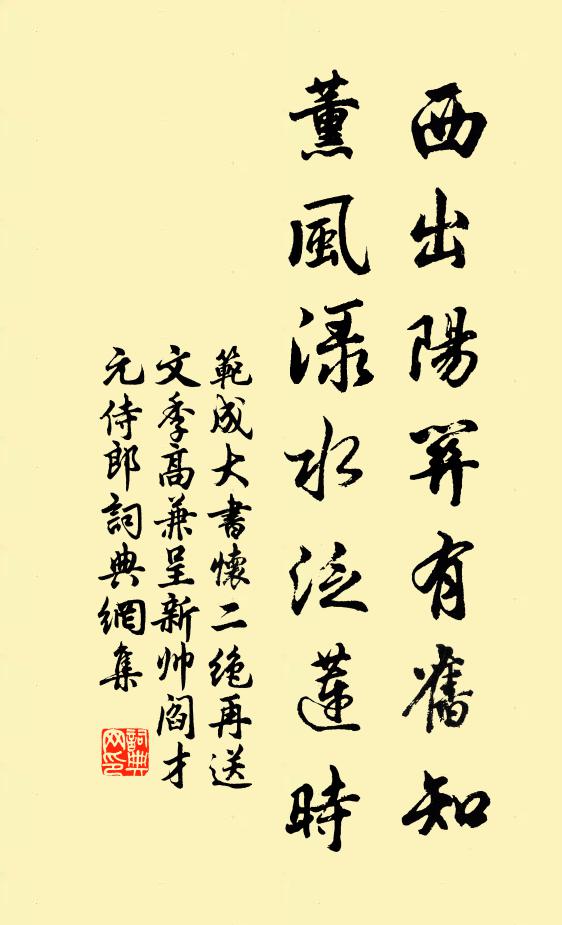 西出陽關有舊知
薰風渌水泛蓮時
範成大書懷二絕再送
文季高兼呈新帅閻才
元侍郎詞典網集
詞典網印